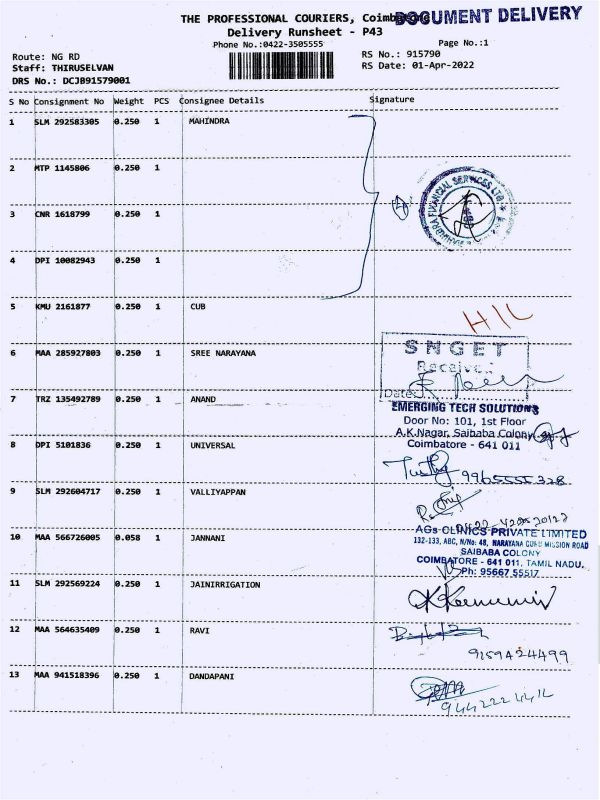 THE PROFESSIONAL COURIERS, Coimbatore
DOCUMENT DELIVERY
Delivery Runsheet - P43
Phone No.:0422-3505555
Page No.:1
Route: NG RD
RS No.: 915790
Staff: THIRUSELVAN
RS Date: 01-Apr-2022
DRS No.: DCJB91579001
S No Consignment No Weight PCS Consignee Details Signature
1 SLM 292583305 0.250 1 MAHINDRA
2 MTP 1145806 0.250 1
FINANCIAL SERVICES LTD.
3 CNR 1618799 0.250 1
4 DPI 10082943 0.250 1
5 KMU 2161877 0.250 1 CUB
HIL
6 MAA 285927803 0.250 1 SREE NARAYANA
SNGET
Received
Date:
7 TRZ 135492789 0.250 1 ANAND
EMERGING TECH SOLUTIONS
Door No: 101, 1st Floor
A.K.Nagar, Saibaba Colony
Coimbatore - 641 011
8 DPI 5101836 0.250 1 UNIVERSAL
9965555328
9 SLM 292604717 0.250 1 VALLIYAPPAN
10 MAA 566726005 0.058 1 JANNANI
AGs CLINICS PRIVATE LIMITED
132-133, ABC, N/No: 48, NARAYANA GURU MISSION ROAD
SAIBABA COLONY
COIMBATORE - 641 011, TAMIL NADU.
Ph: 95667 55517
11 SLM 292569224 0.250 1 JAINIRRIGATION
12 MAA 564635409 0.250 1 RAVI
9159424499
13 MAA 941518396 0.250 1 DANDAPANI
944222441